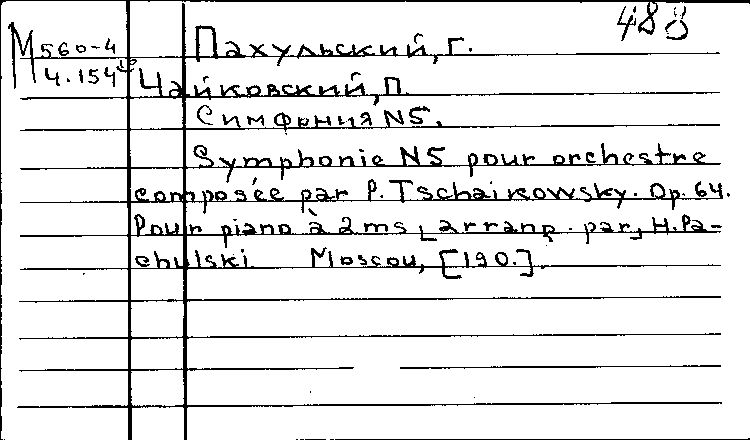 488
М 560-4
4.154
Пахульский, Г.
Чайковский, П.
Симфония N5.
Symphonie N5 pour orchestre
composée par P. Tschaikowsky. Op. 64.
Pour piano à 2 ms [arrang. par] H. Pa-
chulski Moscou, [190.].